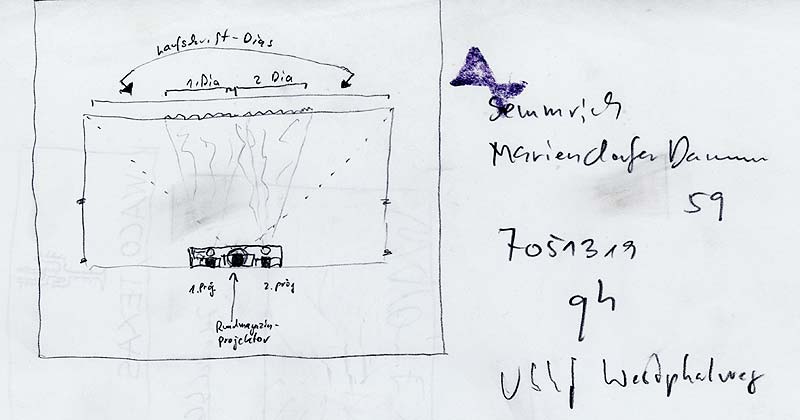 Laufschrift-Dias
1. Dia 2 Dia
1. Proj. 2. Proj
Rundmagazin-
projektor
Semmrich
Mariendorfer Damm
59
7051319
9h
Westphalweg
WACO TEXAS